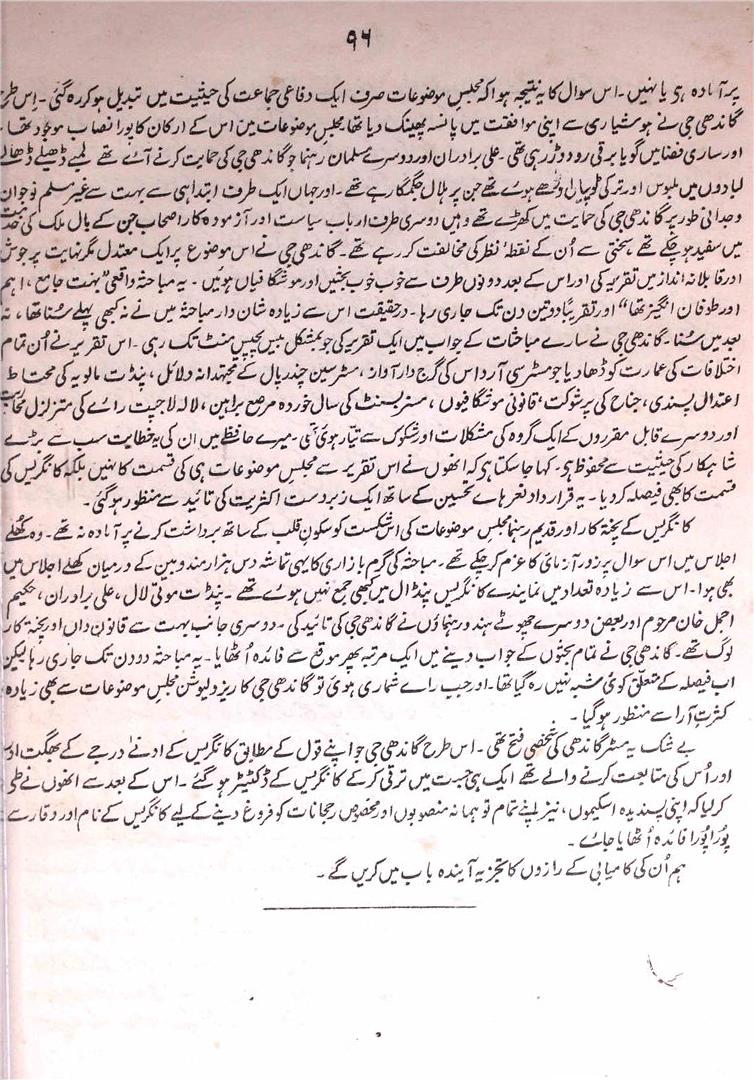 ۹۶
پر آمادہ ہی یا نہیں ۔ اس سوال کا یہ نتیجہ ہوا کہ مجلسِ موضوعات صرف ایک دفاعی جماعت کی حیثیت میں تبدیل ہو کر رہ گئی ۔ اِس طرح
گاندھی جی نے ہوشیاری سے اپنی موافقت میں پانسہ پھینک دیا تھا مجلسِ موضوعات میں اس کے ارکان کا پورا نصاب موجود تھا ۔
اور ساری فضا میں گویا برقی رو دوڑ رہی تھی ۔ علی برادران اور دوسرے مسلمان رہنما جو گاندھی جی کی حمایت کرنے آے تھے لمبے ڈھیلے ڈھالے
لبادوں میں ملبوس اور ترکی ٹوپیاں اوڑھے ہوے تھے جن پر ہلال جگمگا رہے تھے ۔ اور جہاں ایک طرف ابتدا ہی سے بہت سے غیر مسلم نوجوان
وجدانی طور پر گاندھی جی کی حمایت میں کھڑے تھے وہیں دوسری طرف اربابِ سیاست اور آزمودہ کار اصحاب جن کے بال ملک کی خدمت
میں سفید ہو چکے تھے سختی سے اُن کے نقطۂ نظر کی مخالفت کر رہے تھے ۔ گاندھی جی نے اس موضوع پر ایک معتدل مگر نہایت پرجوش
اور قابلانہ انداز میں تقریر کی اور اس کے بعد دونوں طرف سے خوب خوب بحثیں اور موشگافیاں ہوئیں ۔ یہ مباحثہ واقعی ”بہت جامع ، اہم
اور طوفان انگیز تھا“ اور تقریباً دو تین دن تک جاری رہا ۔ درحقیقت اس سے زیادہ شان دار مباحثہ میں نے نہ کبھی پہلے سُنا تھا ، نہ
بعد میں سنا ۔ گاندھی جی نے سارے مباحثات کے جواب میں ایک تقریر کی جو بمشکل بیس پچیس منٹ تک رہی ۔ اس تقریر نے اُن تمام
اختلافات کی عمارت کو ڈھا دیا جو مسٹر سی آر داس کی گرج دار آواز ، مسٹر سین چندر پال کے مجتہدانہ دلائل ، پنڈت مالویہ کی محتاط
اعتدال پسندی ، جناح کی پرشوکت ، قانونی موشگافیوں ، مسز بسنٹ کی سال خوردہ مرصع براہین ، لالہ لاجپت راے کی متزلزل
اور دوسرے قابل مقرروں کے ایک گروہ کی مشکلات اور شکوک سے تیار ہوئی تھی ۔ میرے حافظے میں ان کی یہ خطابت سب سے بڑے
شاہکار کی حیثیت سے محفوظ ہو ۔ کہا جا سکتا ہو کہ انھوں نے اس تقریر سے مجلسِ موضوعات ہی کی قسمت کا نہیں بلکہ کانگریس کی
قسمت کا بھی فیصلہ کر دیا ۔ یہ قرارداد نعرہاے تحسین کے ساتھ ایک زبردست اکثریت کی تائید سے منظور ہو گئی ۔
کانگریس کے پختہ کار اور قدیم رہنما مجلسِ موضوعات کی اس شکست کو سکونِ قلب کے ساتھ برداشت کرنے پر آمادہ نہ تھے ۔ وہ کھلے
اجلاس میں اس سوال پر زور آزمائی کا عزم کر چکے تھے ۔ مباحثہ کی گرم بازاری کا یہی تماشہ دس ہزار مندوبین کے درمیان کھلے اجلاس میں
بھی ہوا ۔ اس سے زیادہ تعداد میں نمایندے کانگریس پنڈال میں کبھی جمع نہیں ہوے تھے ۔ پنڈت موتی لال ، علی برادران ، حکیم
اجمل خان مرحوم اور بعض دوسرے چھوٹے ہندو رہنماؤں نے گاندھی جی کی تائید کی ۔ دوسری جانب بہت سے قانون داں اور پختہ کار
لوگ تھے ۔ گاندھی جی نے تمام بحثوں کے جواب دینے میں ایک مرتبہ پھر موقع سے فائدہ اُٹھایا ۔ یہ مباحثہ دو دن تک جاری رہا لیکن
اب فیصلہ کے متعلق کوئی شبہ نہیں رہ گیا تھا ۔ اور جب راے شماری ہوئی تو گاندھی جی کا ریزولیوشن مجلسِ موضوعات سے بھی زیادہ
کثرتِ آرا سے منظور ہو گیا ۔
بے شک یہ مسٹر گاندھی کی شخصی فتح تھی ۔ اس طرح گاندھی جی جو اپنے قول کے مطابق کانگریس کے ادنےٰ درجے کے بھگت
اور اُس کی متابعت کرنے والے تھے ایک ہی جست میں ترقی کر کے کانگریس کے ڈکٹیٹر ہو گئے ۔ اس کے بعد سے انھوں نے طی
کر لیا کہ اپنی پسندیدہ اسکیموں ، نیز اپنے تمام توہمانہ منصوبوں اور مخصوص رجحانات کو فروغ دینے کے لیے کانگریس کے نام اور وقار سے
پورا پورا فائدہ اُٹھایا جاے ۔
ہم اُن کی کامیابی کے رازوں کا تجزیہ آیندہ باب میں کریں گے ۔